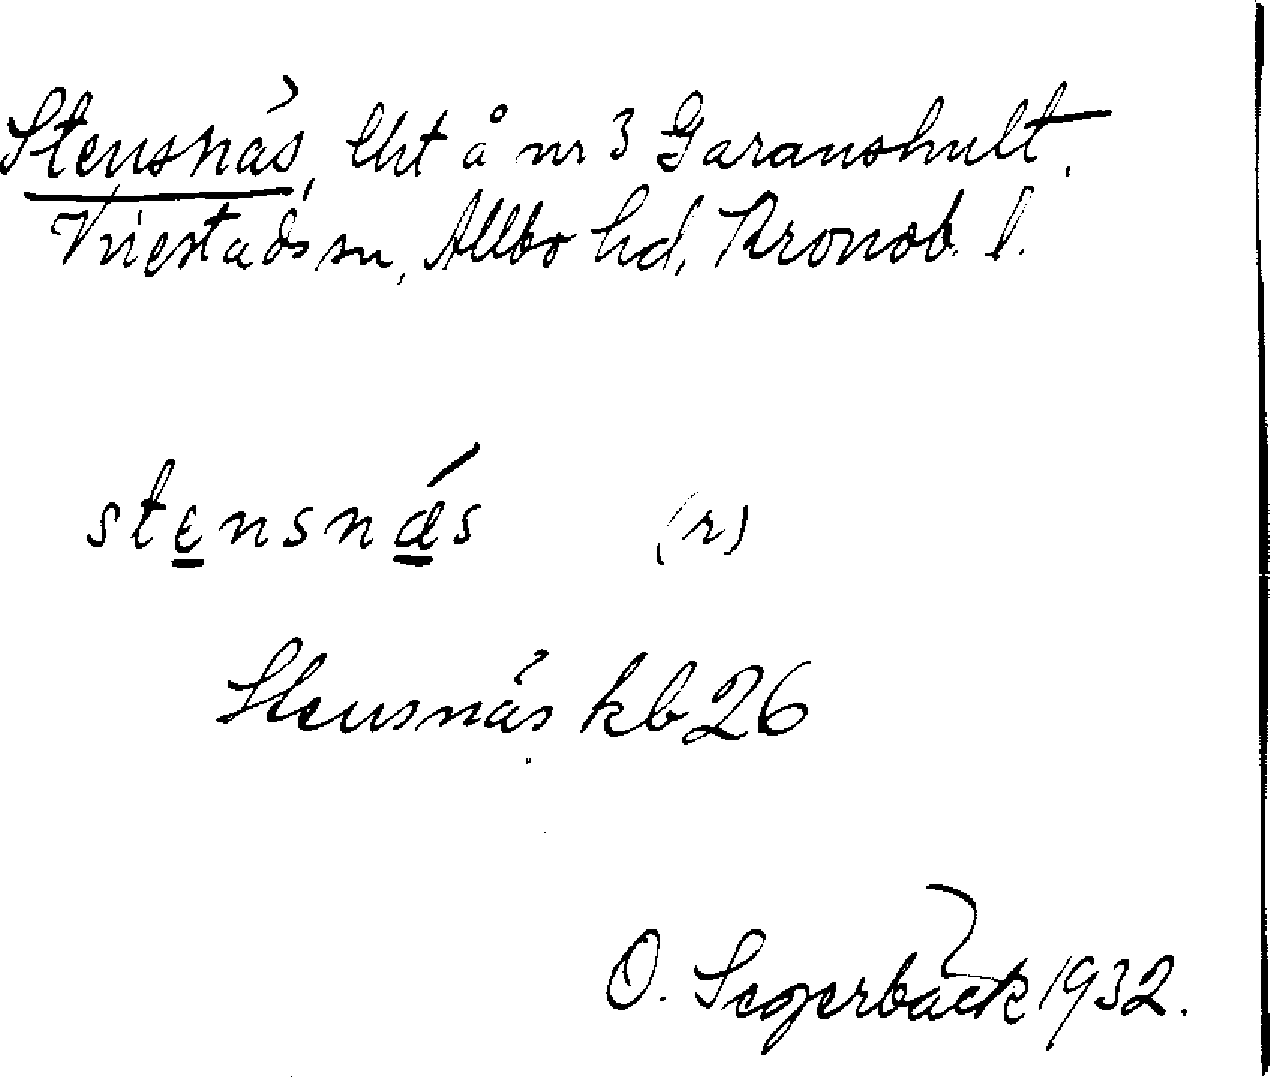 Stensnäs, lht å nr 3 Garanshult.
Virestads sn, Allbo hd, Kronob. l.
stensnæ´s (r)
Stensnäs kb 26
O. Segerbäck 1932.